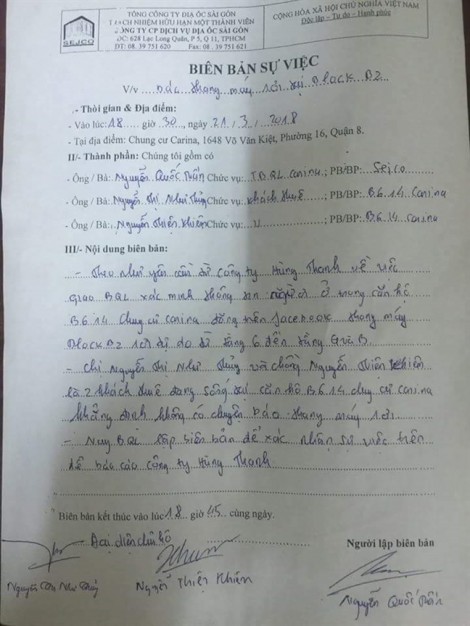 TỔNG CÔNG TY ĐỊA ỐC SÀI GÒN
TRÁCH NHIỆM HỮU HẠN MỘT THÀNH VIÊN
CÔNG TY CP DỊCH VỤ ĐỊA ỐC SÀI GÒN
ĐC: 628 Lạc Long Quân, P 5, Q 11, TPHCM
ĐT: 08. 39 751 620 Fax: 08. 39 751 621
SEJCO
CỘNG HÒA XÃ HỘI CHỦ NGHĨA VIỆT NAM
Độc lập - Tự do - Hạnh phúc
BIÊN BẢN SỰ VIỆC
V/v thang máy rơi tại Block B2
- Thời gian & Địa điểm:
- Vào lúc: 18 giờ 30, ngày 21/3/2018
- Tại địa điểm: Chung cư Carina, 1648 Võ Văn Kiệt, Phường 16, Quận 8.
II/- Thành phần: Chúng tôi gồm có
- Ông / Bà: Nguyễn Quốc Tuấn Chức vụ: TBQL Carina; PB/BP: Sejco
- Ông / Bà: Nguyễn Thị Như Thủy Chức vụ: khách thuê; PB/BP: B.6.14 carina
- Ông / Bà: Nguyễn Thiện Khiêm Chức vụ: ; PB/BP: B.6.14 carina
III/- Nội dung biên bản:
- Theo như yêu cầu từ công ty Hùng Thanh về việc
giao BQL xác minh thông tin người ở trong căn hộ
B6 14 chung cư carina đăng trên facebook thang máy
Block B2 rơi tự do từ tầng 6 đến tầng
- Chị Nguyễn Thị Như Thủy và chồng Nguyễn Thiện Khiêm
là 2 khách thuê đang sống tại căn hộ B.6.14 chung cư carina
khẳng định không có chuyện báo thang máy rơi.
- Nay BQL lập biên bản để xác nhận sự việc trên
để báo cáo công ty Hùng Thanh
Biên bản kết thúc vào lúc 18 giờ 45 cùng ngày.
Đại diện căn hộ
Người lập biên bản
Nguyễn Thị Như Thủy
Nguyễn Thiện Khiêm
Nguyễn Quốc Tuấn